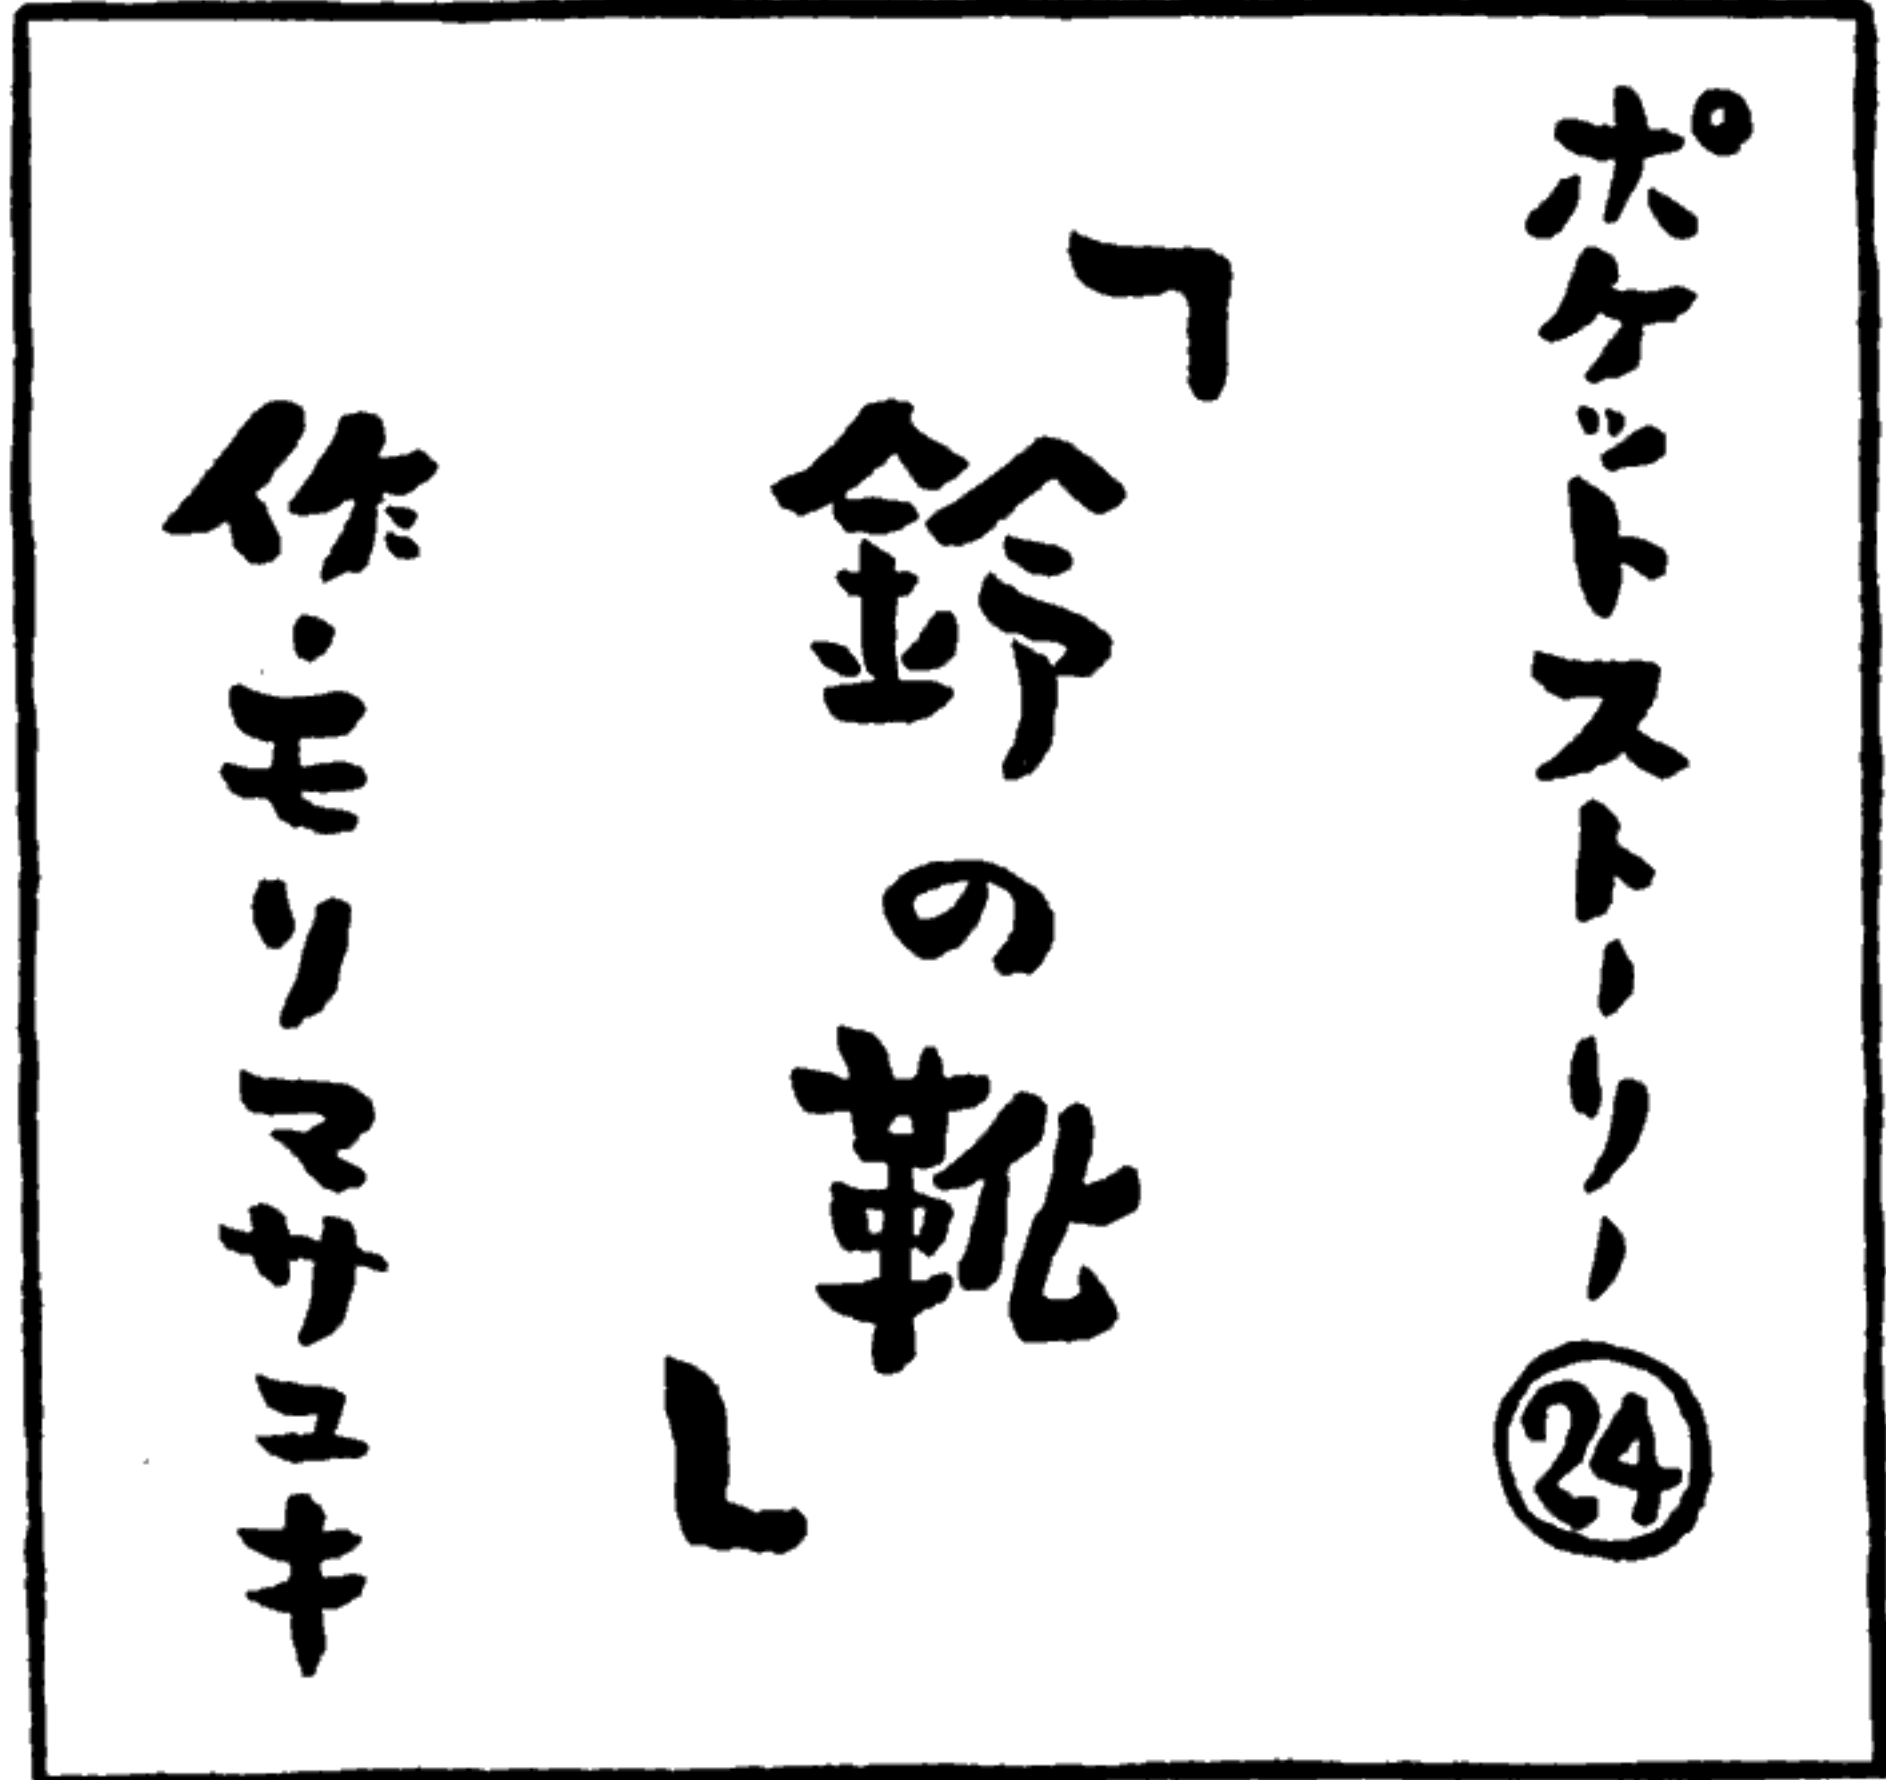 ポケットストーリー㉔
「鈴の靴」
作・モリマサユキ